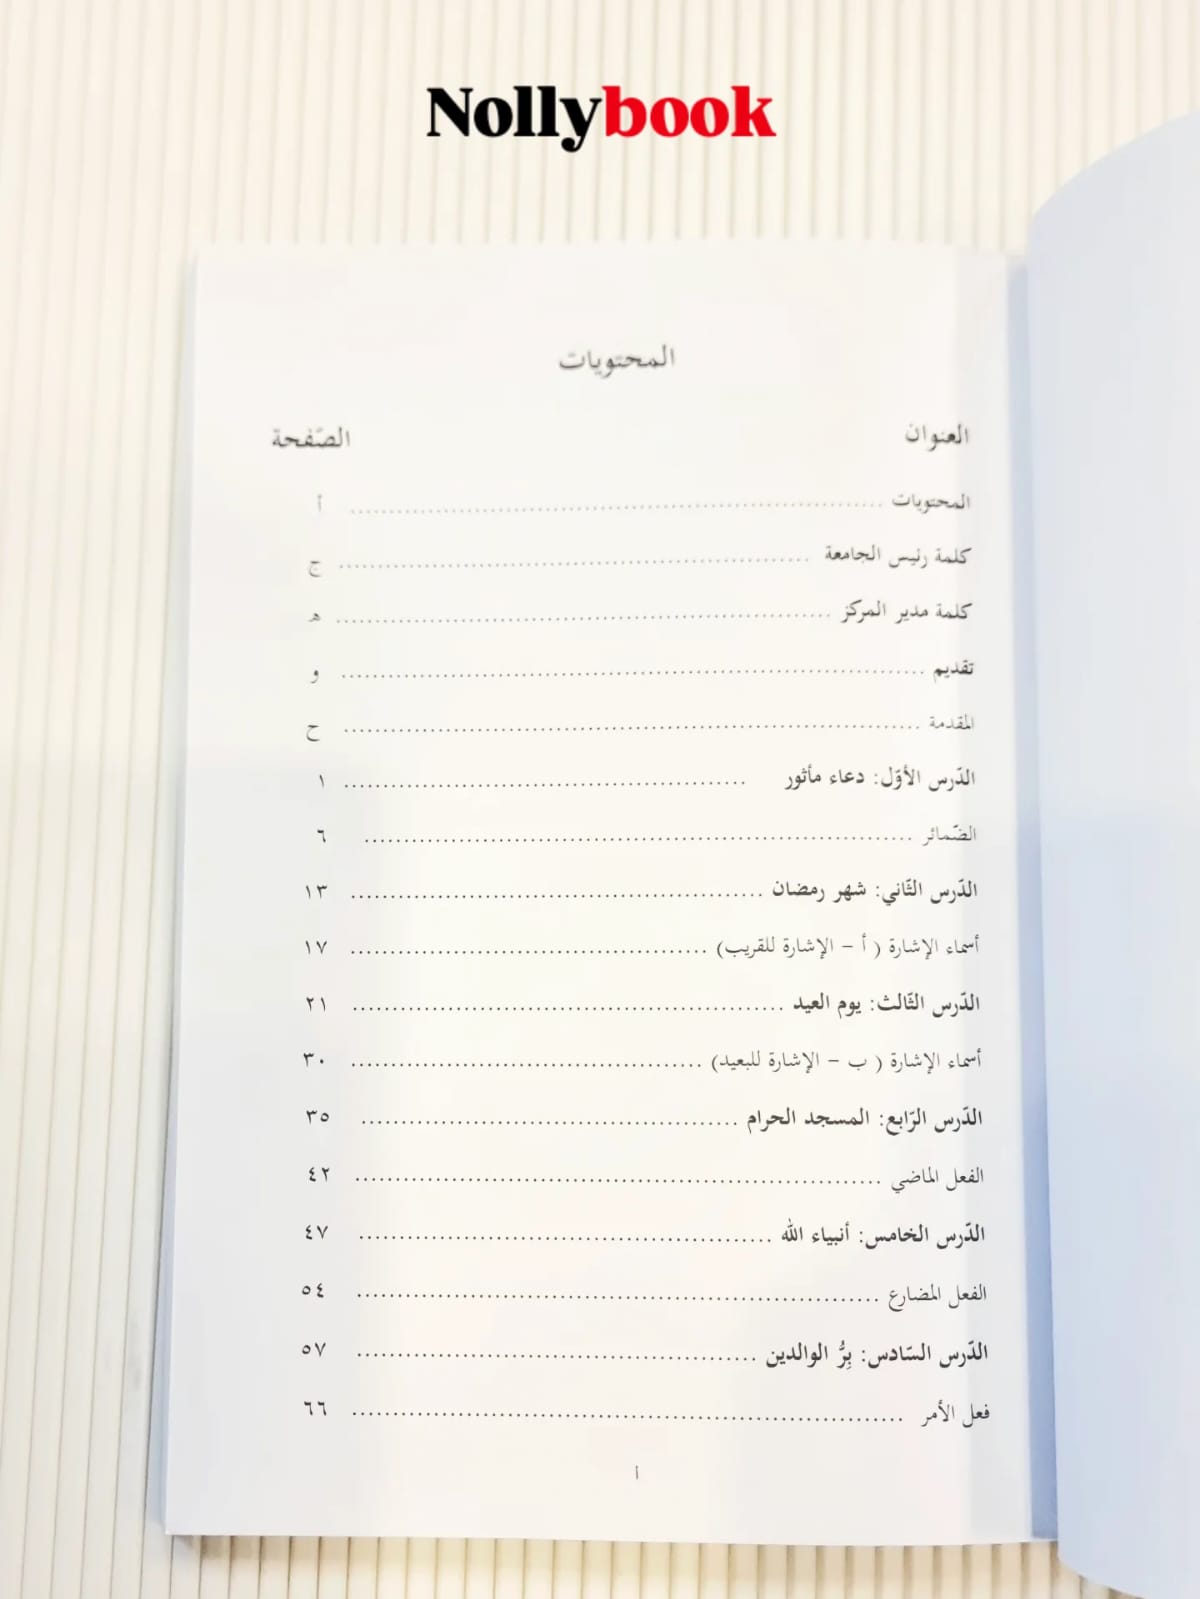 Nollybook
المحتويات
العنوان الصّفحة
المحتويات ........................................ أ
كلمة رئيس الجامعة ........................................ ج
كلمة مدير المركز ........................................ هـ
تقديم ........................................ و
المقدمة ........................................ ح
الدّرس الأوّل: دعاء مأثور ........................................ ١
الضّمائر ........................................ ٦
الدّرس الثّاني: شهر رمضان ........................................ ١٣
أسماء الإشارة ( أ – الإشارة للقريب) ........................................ ١٧
الدّرس الثّالث: يوم العيد ........................................ ٢١
أسماء الإشارة ( ب – الإشارة للبعيد) ........................................ ٣٠
الدّرس الرّابع: المسجد الحرام ........................................ ٣٥
الفعل الماضي ........................................ ٤٢
الدّرس الخامس: أنبياء الله ........................................ ٤٧
الفعل المضارع ........................................ ٥٤
الدّرس السّادس: بِرُّ الوالدين ........................................ ٥٧
فعل الأمر ........................................ ٦٦
أ